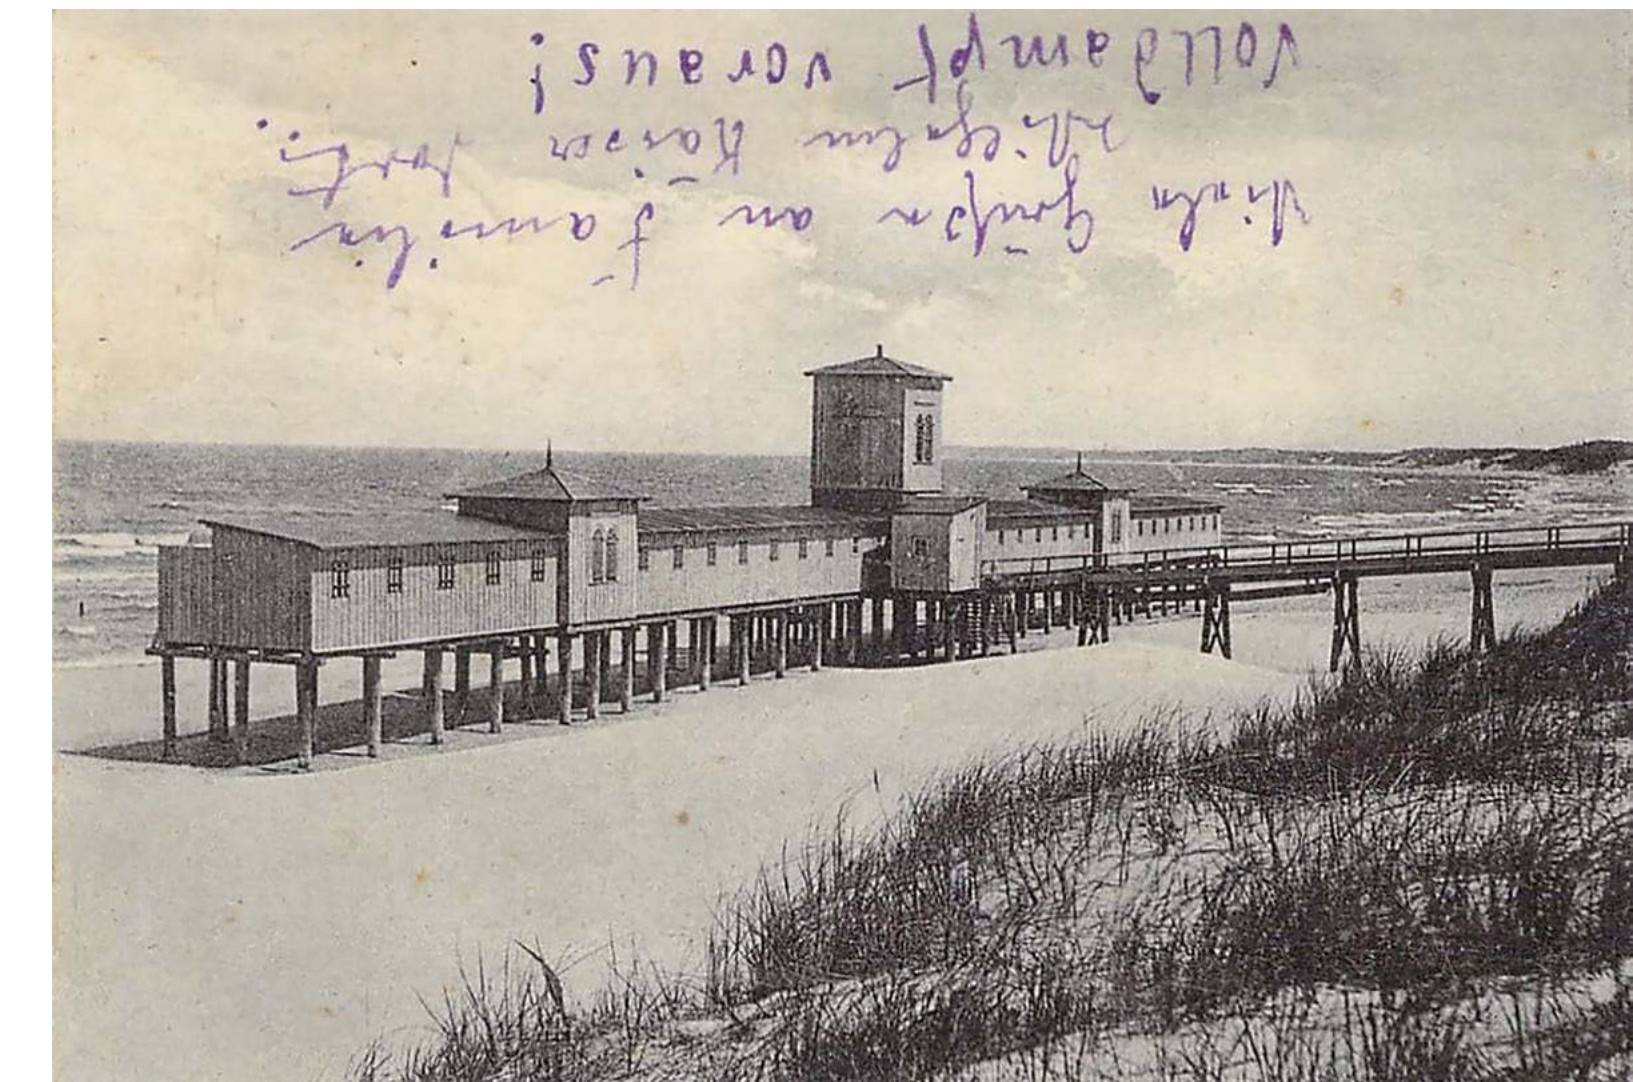 Viele Grüße an Familie
Wilhelm Kaiser dort.
Volldampf voraus!